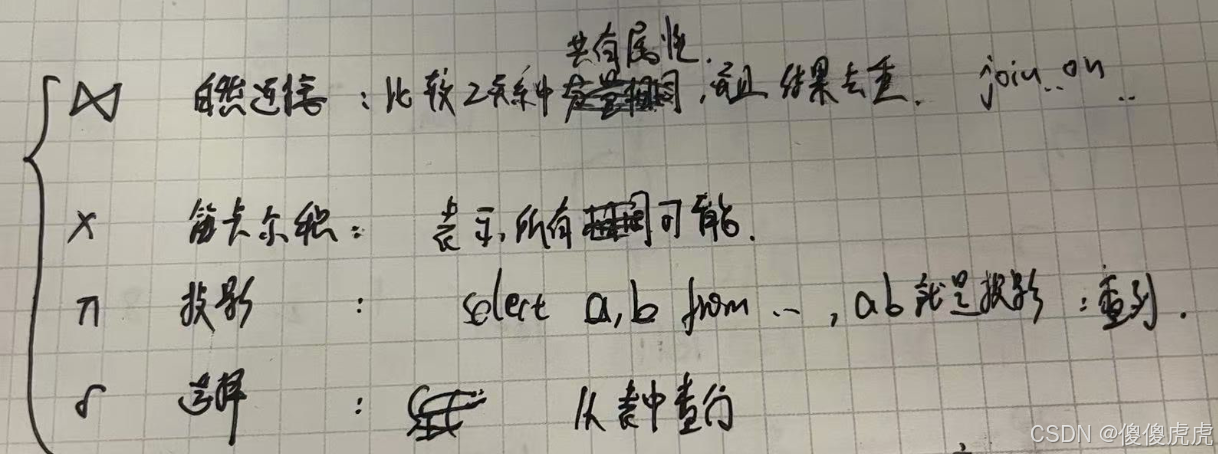 共有属性.
⋈ 自然连接：比较2关系中,而且结果去重. join..on..
× 笛卡尔积： 表示所有可能.
π 投影 ： select a,b from .., ab就是投影：查列.
σ 选择 ： 从表中查行
CSDN @傻傻虎虎